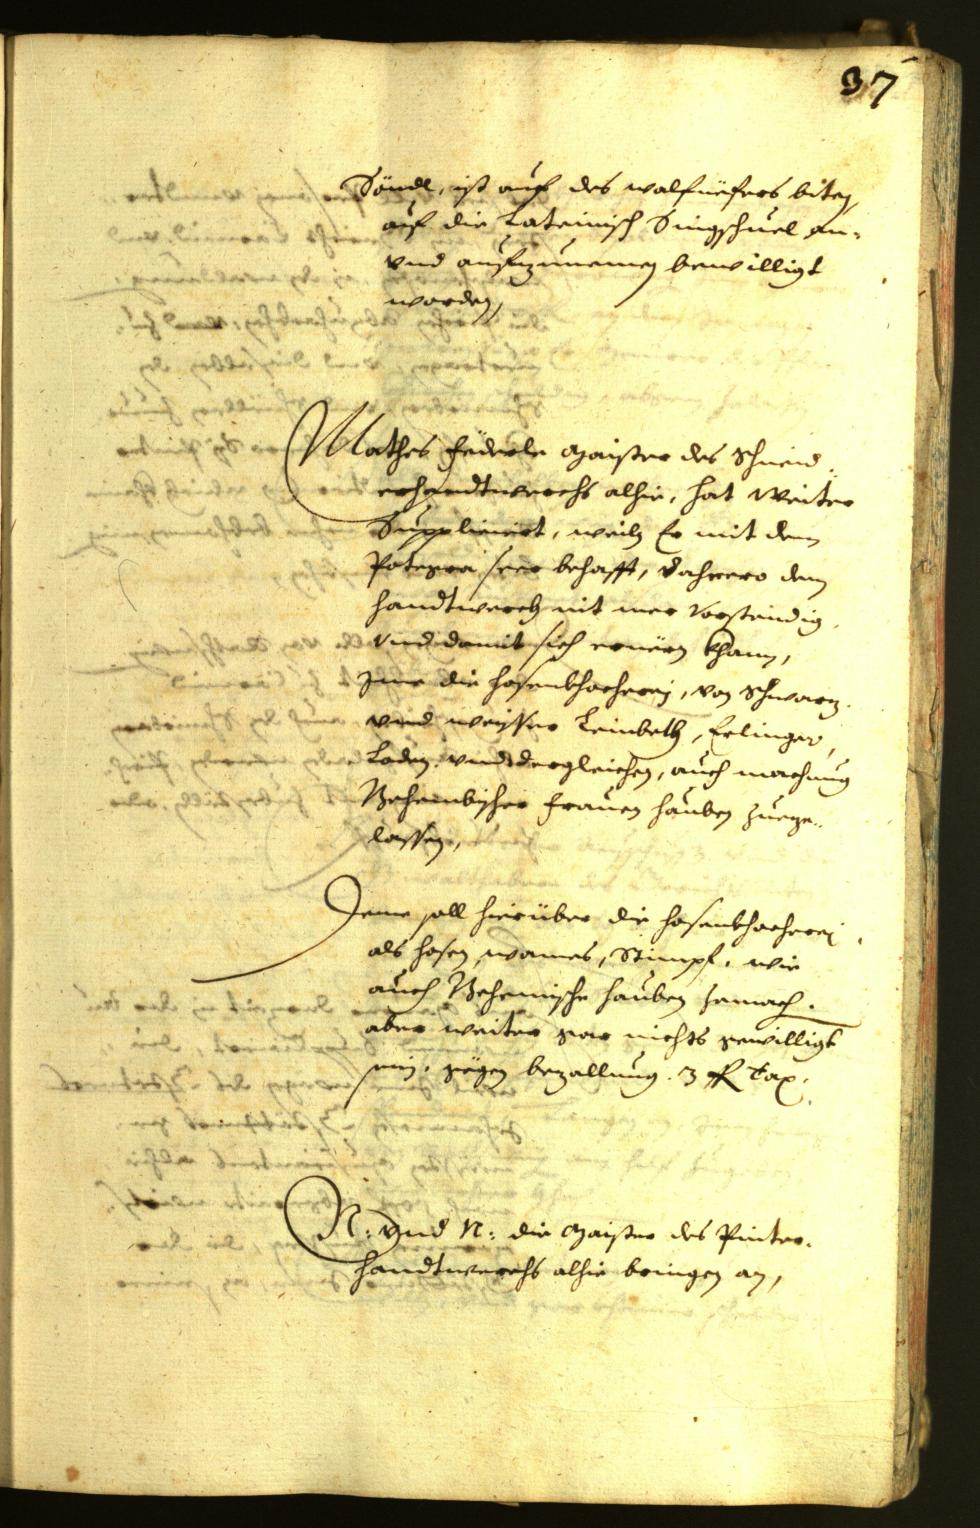 37
Söndl, ist auf des walfüefers biten,
auf die Lateinisch Singschuel an-
vnd aufzunemen bewilligt
worden,
Mathes Federle Maister des Schneid-
erhandtwerchs alhie, hat weiter
Supplicirt, weiln Er mit dem
Potegra seer behafft, dahero dem
handtwerch nit mer vorstendig,
vnd damit sich ernern khann,
Jme die hosenkhocherej, von Schwarz
vnd weisser Leinbeth, Erlinger,
Loden, vnd dergleichen, auch machung
Behembischer frauen hauben zuege-
lassen,
Deme soll hierüber die hosenkhocherej,
als hosen, wames, Stimpf, wie
auch Behemische hauben zemach.
aber weiter gar nichts gewilligt
sein, gegen bezallung 3 fl Tax.
N: vnd N: die Maister des Pinter-
handtwerchs alhie bringen an,